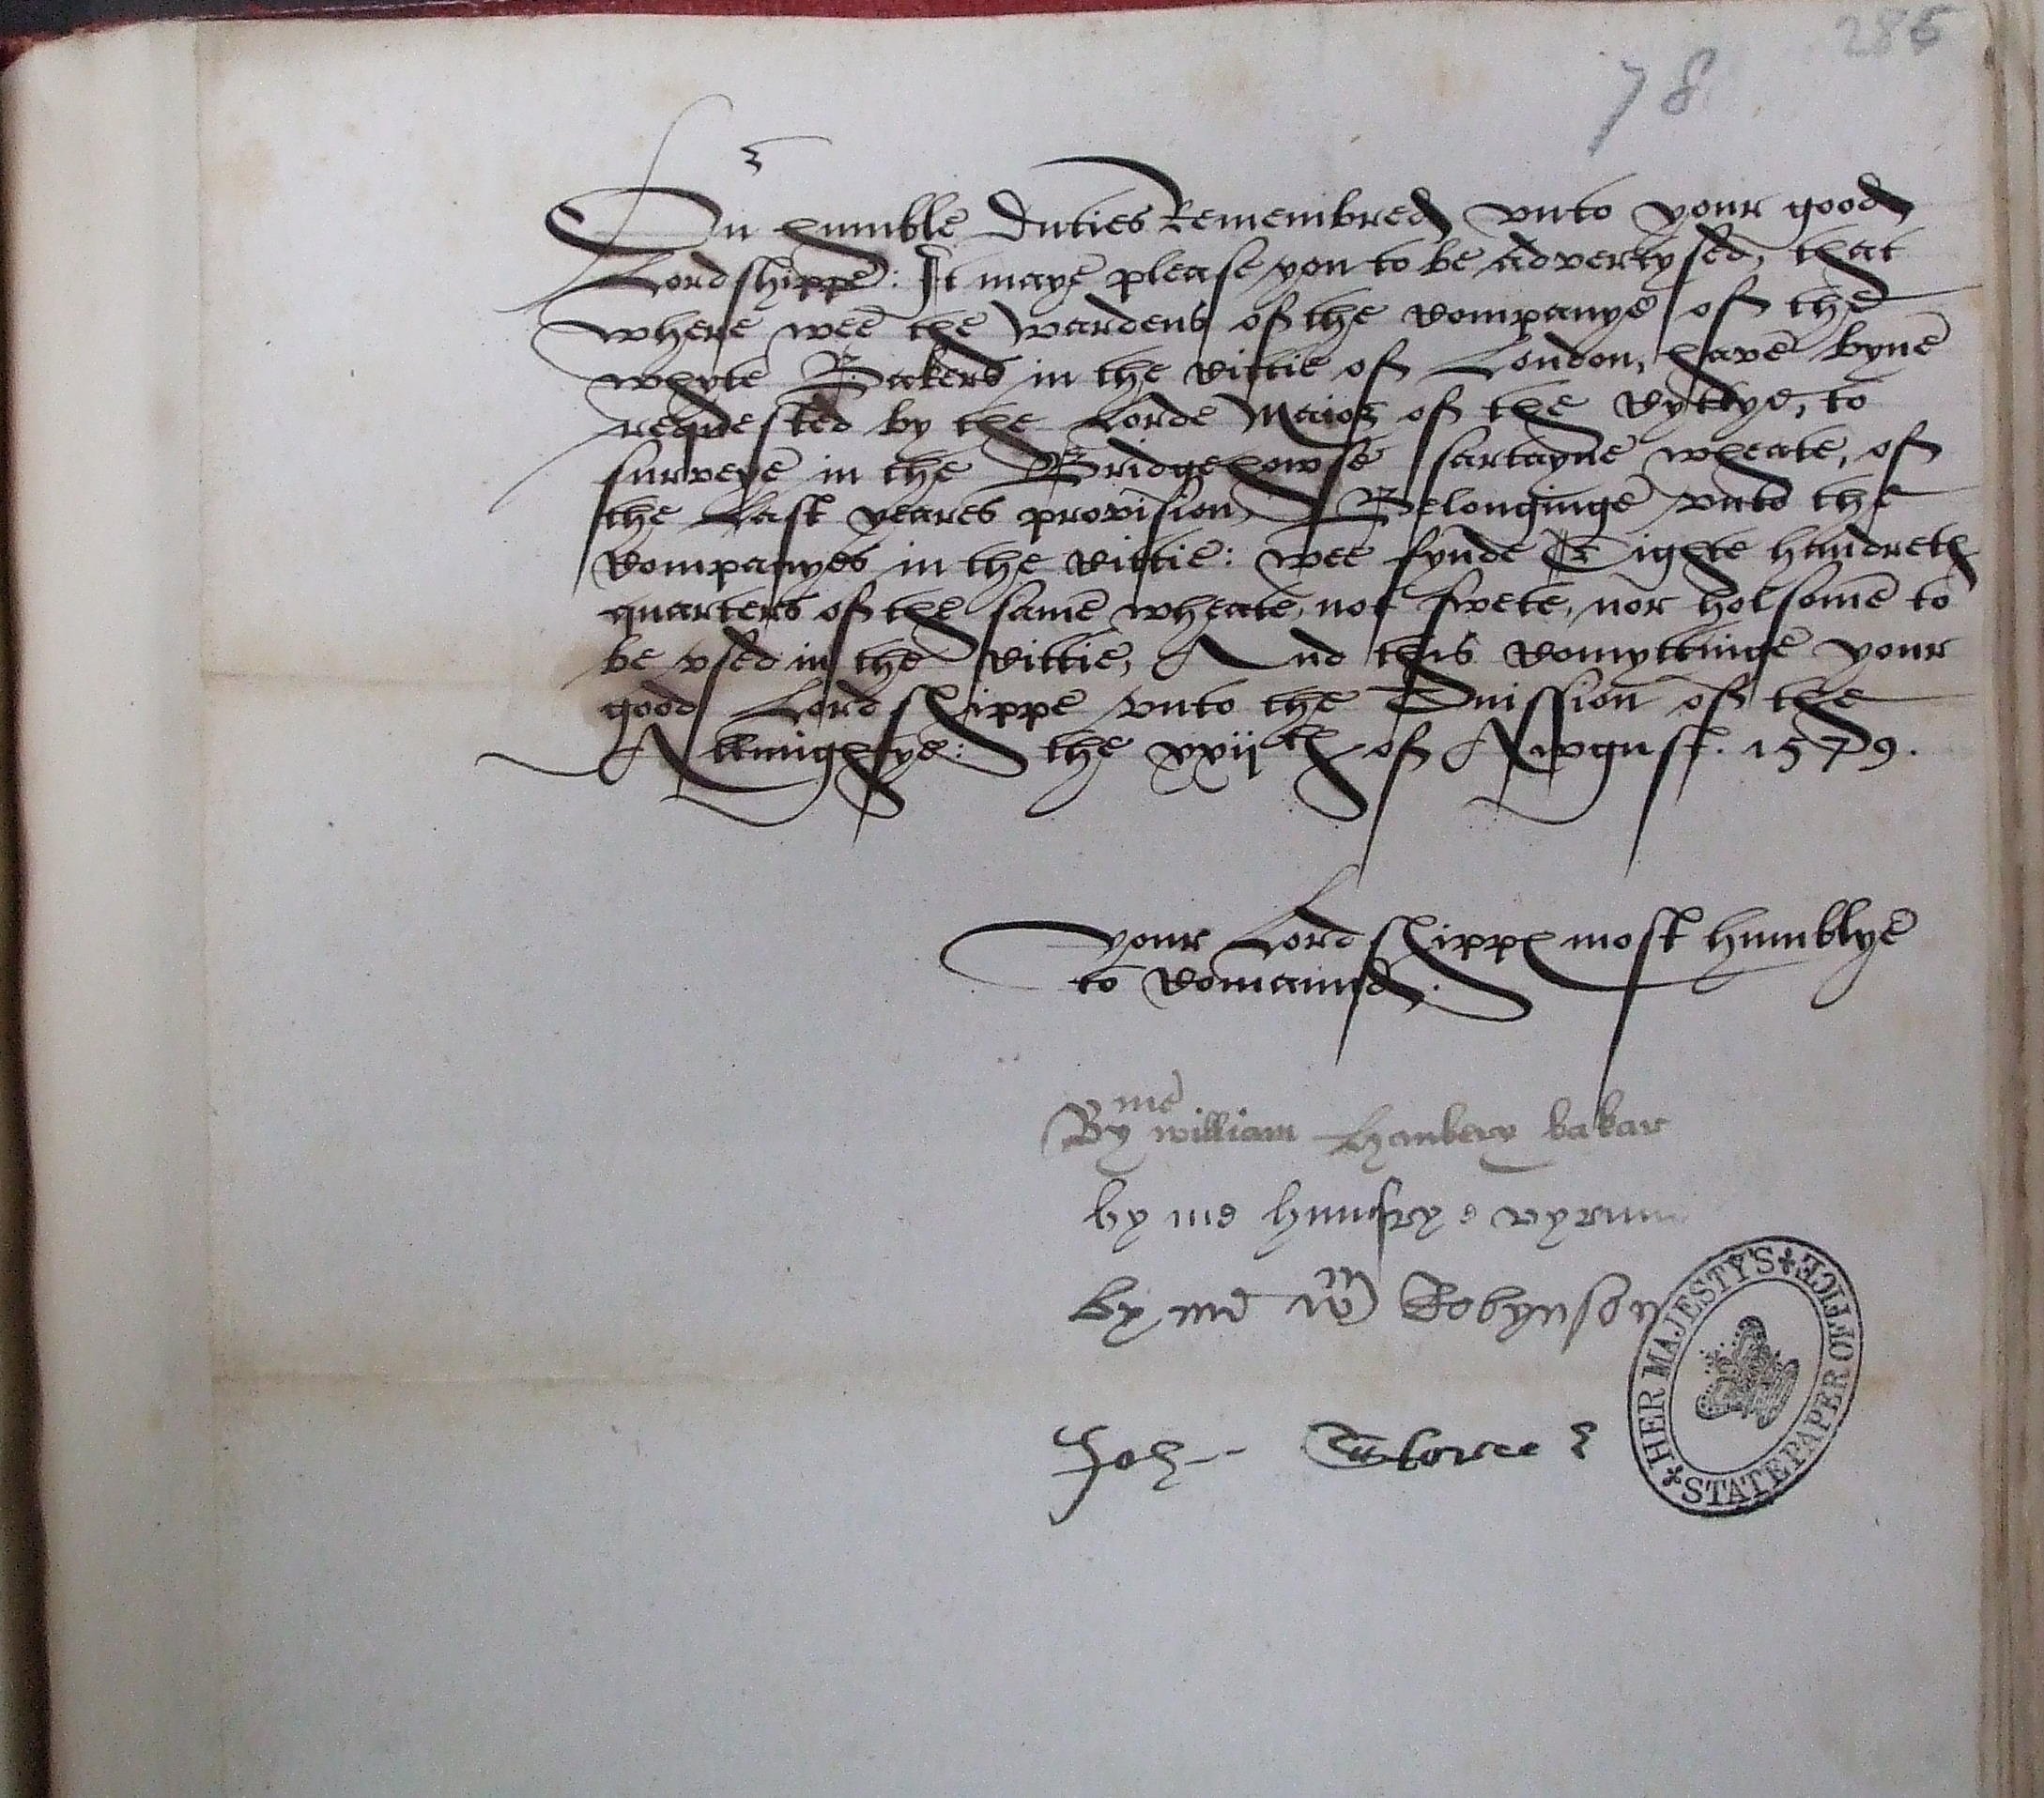 286
78
Our humble duties Remembred vnto your good
Lordshippe: It maye please you to be advertysed, that
where wee the wardens of the Companye of the
whyte Bakers in the Cittie of London, have byne
requested by the Lorde Maior of the Cyttye, to
surveye in the Bridgehowse sartayne wheate, of
the Last yeares provision, Belonginge vnto the
Companyes in the Cittie: wee fynde Eighte hundreth
quarters of the same wheate, not swete, nor holsome to
be vsed in the Cittie, And thus Comyttinge your
good Lordshippe vnto the Tuission of the
Allmightye: the xxijth of Awgust. 1579.
your Lordshippe most humblye
to Comaunde.
By me william hanbery bakar
by me humfrye
by me Wm Robynson
John
HER MAJESTY'S STATE PAPER OFFICE